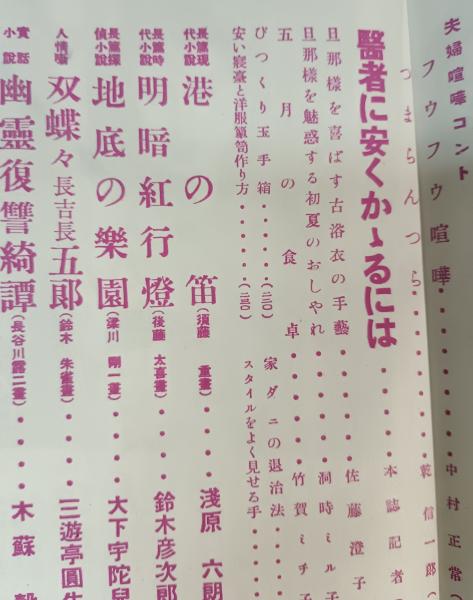 夫婦喧嘩コント
フウフウ喧嘩・・・・・・・・・中村正常(
つまらんつら・・・・・・・・・乾信一郎(
醫者に安くかゝるには・・・・・本誌記者(
旦那様を喜ばす古浴衣の手藝・・・・・佐藤澄子
旦那様を魅惑する初夏のおしやれ・・・・・洞時ミル子
五月の食卓・・・・・竹賀ミチ子
びつくり玉手箱・・・・(二三〇)
家ダニの退治法・・・・
安い寢臺と洋服簞笥作り方・・・・・(二三〇)
スタイルをよく見せる手・・・
長篇現代小説 港の笛(須藤重畫)・・・・淺原六朗
長篇時代小説 明暗紅行燈(後藤太喜畫)・・・・鈴木彦次郎
長篇探偵小説 地底の樂園(梁川剛一畫)・・・・大下宇陀兒
人情噺 双蝶々長吉長五郎(鈴木朱雀畫)・・・・三遊亭圓生
實話小説 幽靈復讐綺譚(長谷川露二畫)・・・・木蘇